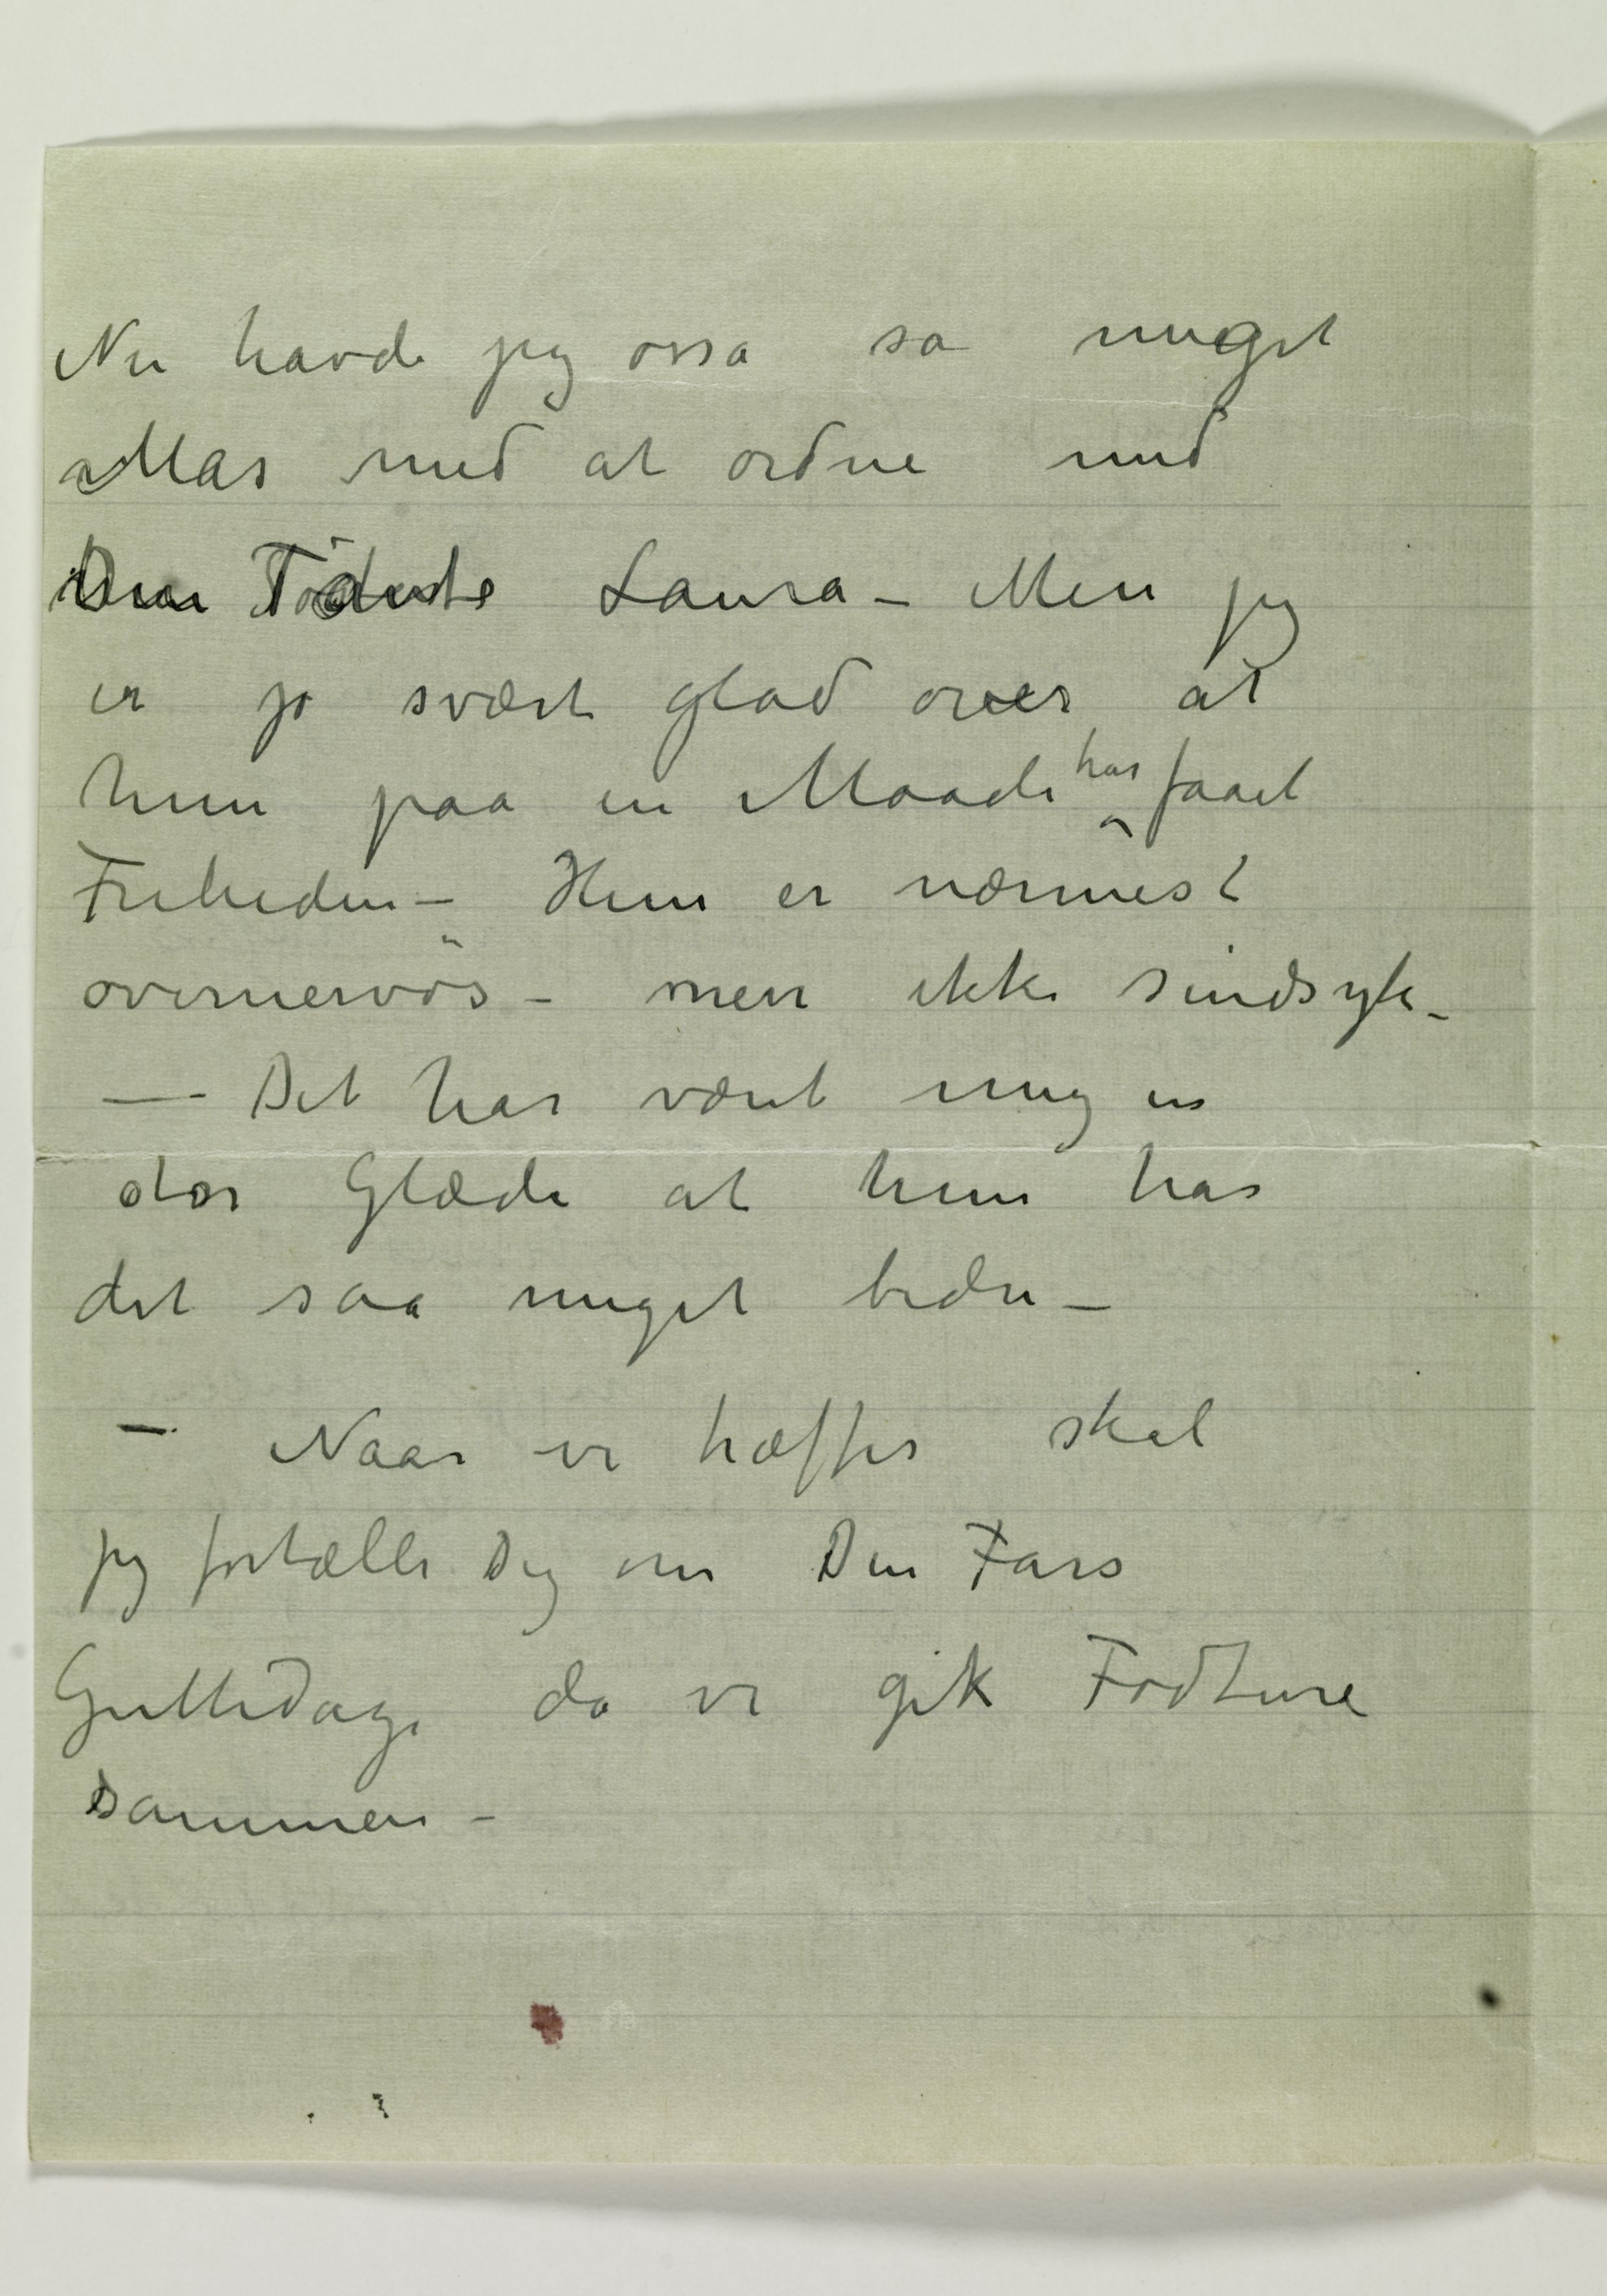 Nu havde jeg osså så meget
Mas med at ordne med
Din Tante Laura – Men jeg
er jo svært glad over at
hun paa en Maade har faaet
Friheden – Hun er nærmest
overnervös – men ikke sindsyk –
— Det har været mig en
stor Glæde at hun har
det saa meget bedre –
– Naar vi træffes skal
jeg fortælle Dig om Din Fars
Guttedage da vi gik Fodture
sammen –